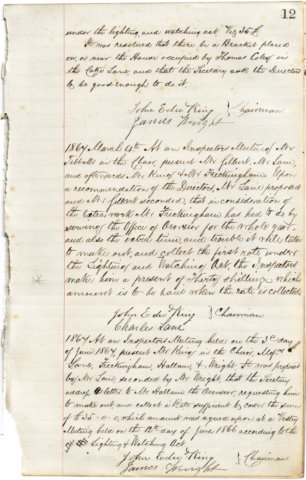 12
under the lighting and watching act Viz 35£
It was resolved that there be a Bracket placed
on or near the House occupied by Thomas Coley in
the Lane and that the Secretary ask the Directors
to be good enough to do it.
John Edie King } Chairman
James Wright
1867 March At an Inspectors Meeting Mr
Tibballs in the Chair, present Mr Gilbert, Mr Lane,
and afterwards Mr King & Mr Freckingham. Upon
a recommendation of the Directors, Mr Lane proposed
and Mr Gilbert seconded, that in consideration of
the Extra work Mr Freckingham has had to do by
serving the Office of Overseer for the whole year
and also the extra time and trouble it will take
to make out, and collect the first rate under
the Lighting and Watching Act, the Inspectors
make him a present of Thirty shillings which
amount is to be paid when the rate is collected
John Edie King } Chairman
Charles Lane
1867 At an Inspectors Meeting held on the 3rd day
of June 1867, present Mr King in the Chair, Messrs
Lane, Freckingham, Hallam, & Wright. It was proposed
by Mr Lane, seconded by Mr Wright, that the Secretary
a letter to Mr Hallam the Overseer, requesting him
to make out and collect a Rate sufficient to cover the sum
of £35-0-0, which amount was agreed upon at a Vestry
Meeting held on the 12th day of June 1866 according to the
Lighting & Watching Act
John Edie King } Chairman
James Wright